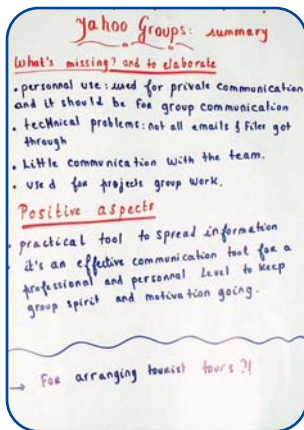 Yahoo Groups: summary
What's missing? and to elaborate
• personnal use: used for private communication
and it should be for group communication
• technical problems: not all emails & Files got
through
• Little communication with the team.
• used for projects group work.
Positive aspects
• practical tool to spread information
• it's an effective communication tool for a
professional and personnal level to keep
group spirit and motivation going.
→ For arranging tourist tours ?!